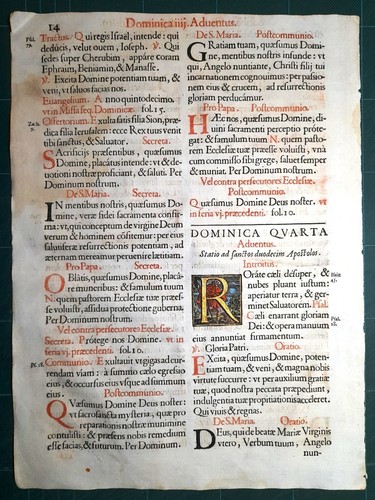 14
Dominica iiij. Aduentus.
Tractus. Qui regis Israel, intende: qui
deducis, velut ouem, Ioseph. ℣. Qui
sedes super Cherubim, appare coram
Ephraim, Beniamin, & Manasse.
℣. Excita Domine potentiam tuam, &
veni, vt saluos facias nos.
Euangelium. Anno quintodecimo.
vt in Missa seq. Dominicæ. fol. 15.
Offertorium. Exulta satis filia Sion, præ-
dica filia Ierusalem: ecce Rex tuus venit
tibi sanctus, & Saluator. Secreta.
Sacrificijs præsentibus, quæsumus
Domine, placatus intende: vt & de-
uotioni nostræ proficiant, & saluti. Per
Dominum nostrum.
De S. Maria. Secreta.
IN mentibus nostris, quæsumus Do-
mine, veræ fidei sacramenta confir-
ma: vt, qui conceptum de virgine Deum
verum & hominem confitemur: per eius
salutiferæ resurrectionis potentiam, ad
æternam mereamur peruenire lætitiam.
Pro Papa. Secreta.
OBlatis, quæsumus Domine, placá-
re muneribus: & famulum tuum
N. quem pastorem Ecclesiæ tuæ præes-
se voluisti, assidua protectione guberna.
Per Dominum nostrum.
Vel contra persecutores Ecclesiæ.
Secreta. Protege nos Domine. vt in
feria vj. præcedenti. fol. 10.
Communio. Exultauit vt gigas ad cur-
rendam viam: à summo cælo egressio
eius, & occursus eius vsque ad summum
eius. Postcommunio.
QVæsumus Domine Deus noster:
vt sacrosancta mysteria, quæ pro
reparationis nostræ munimine
contulisti: & præsens nobis remedium
esse facias, & futurum. Per Dominum.
De S. Maria. Postcommunio.
GRatiam tuam, quæsumus Domi-
ne, mentibus nostris infunde: vt
qui, Angelo nuntiante, Christi filij tui
incarnationem cognouimus: per passio-
nem eius & crucem, ad resurrectionis
gloriam perducamur.
Pro Papa. Postcommunio.
HÆc nos, quæsumus Domine, di-
uini sacramenti perceptio prote-
gat: & famulum tuum N. quem pasto-
rem Ecclesiæ tuæ præesse voluisti, vnà
cum commisso sibi grege, saluet semper
& muniat. Per Dominum nostrum.
Vel contra persecutores Ecclesiæ.
Postcommunio.
Quæsumus Domine Deus noster. vt
in feria vj. præcedenti. fol 10.
DOMINICA QVARTA
Aduentus.
Statio ad sanctos duodecim Apostolos.
Introitus.
ROráte cæli désuper, &
nubes pluant iustum:
aperiatur terra, & ger-
minet Saluatorem. Psal.
Cæli enarrant gloriam
Dei: & opera manuum
eius annuntiat firmamentum.
℣. Gloria Patri. Oratio.
Excita, quæsumus Domine, poten-
tiam tuam, & veni, & magna nobis
virtute succurre: vt per auxilium gratiæ
tuæ, quod nostra peccata præpediunt,
indulgentia tuæ propitiationis acceleret.
Qui viuis & regnas.
De S. Maria. Oratio.
DEus, qui de beatæ Mariæ Virginis
vtero, Verbum tuum, Angelo
nun-